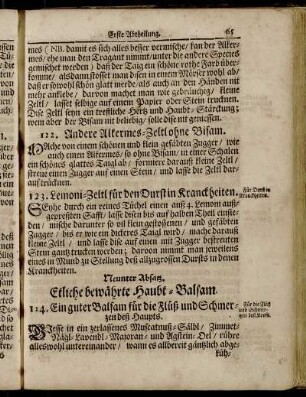 Erste Abtheilung. 65
mes (NB. damit es sich alles besser vermische/ kan der Alker-
mes/ ehe man den Tragant nimmt/ unter die andere Species
gemischet werden) daß der Taig ein schöne rothe Farb überkomme/
alsdann stosset man disen in einem Mörser wohl ab/
daß er sowohl schön glatt werde/ als auch an den Händen nit
mehr anklebe/ darvon machet man wie gebräuchig/ kleine
Zeltl/ lasset selbige auf einem Papier oder Stein trucknen.
Dise Zeltl seyn ein treffliche Hertz und Haubt-Stärckung;
wem aber der Bisam nit beliebig/ solle dise nit geniessen.
122. Andere Alkermes-Zeltl ohne Bisam.
MAche von einem schönen und klein gefähten Zugger/ wie
auch einen Alkermes/ so ohne Bisam/ in einer Schalen
ein schönes glattes Taigl ab/ formere daraus kleine Zeltl/
streue einen Zugger auf einen Stein/ und lasse die Zeltl dar-
auf trücknen.
123. Lemoni-Zeltl für den Durst in Kranckheiten.
Für Durst in
Kranckheiten.
SEyhe durch ein reines Tüchel einen auß 4. Lemoni auß-
gepreßten Safft/ lasse disen bis auf halben Theil einsie-
den/ mische darunter so vil klein gestossenen/ und gefähten
Zugger/ bis es hier ein dickeres Taigl wird/ mache daraus
kleine Zeltl/ und lasse dise auf einem mit Zugger bestreuten
Stein gantz trucken werden; darvon nimmt man jeweilens
eines in Mund zu Stellung deß allzugrossen Dursts in denen
Kranckheiten.
Neunter Absatz.
Etliche bewährte Haubt-Balsam.
124. Ein guter Balsam für die Flüß und Schmer-
zen deß Haupts.
Für die Flüß
und Schmer-
zen deß Haubts.
GIesse in ein zerlassenes Muscatnuß-Sälbl/ Zimmet-
Nägl-Lavendl-Majoran- und Agstein-Oel/ rühre
alles wohl untereinander/ wann es allbereit gäntzlich abge-
küh-